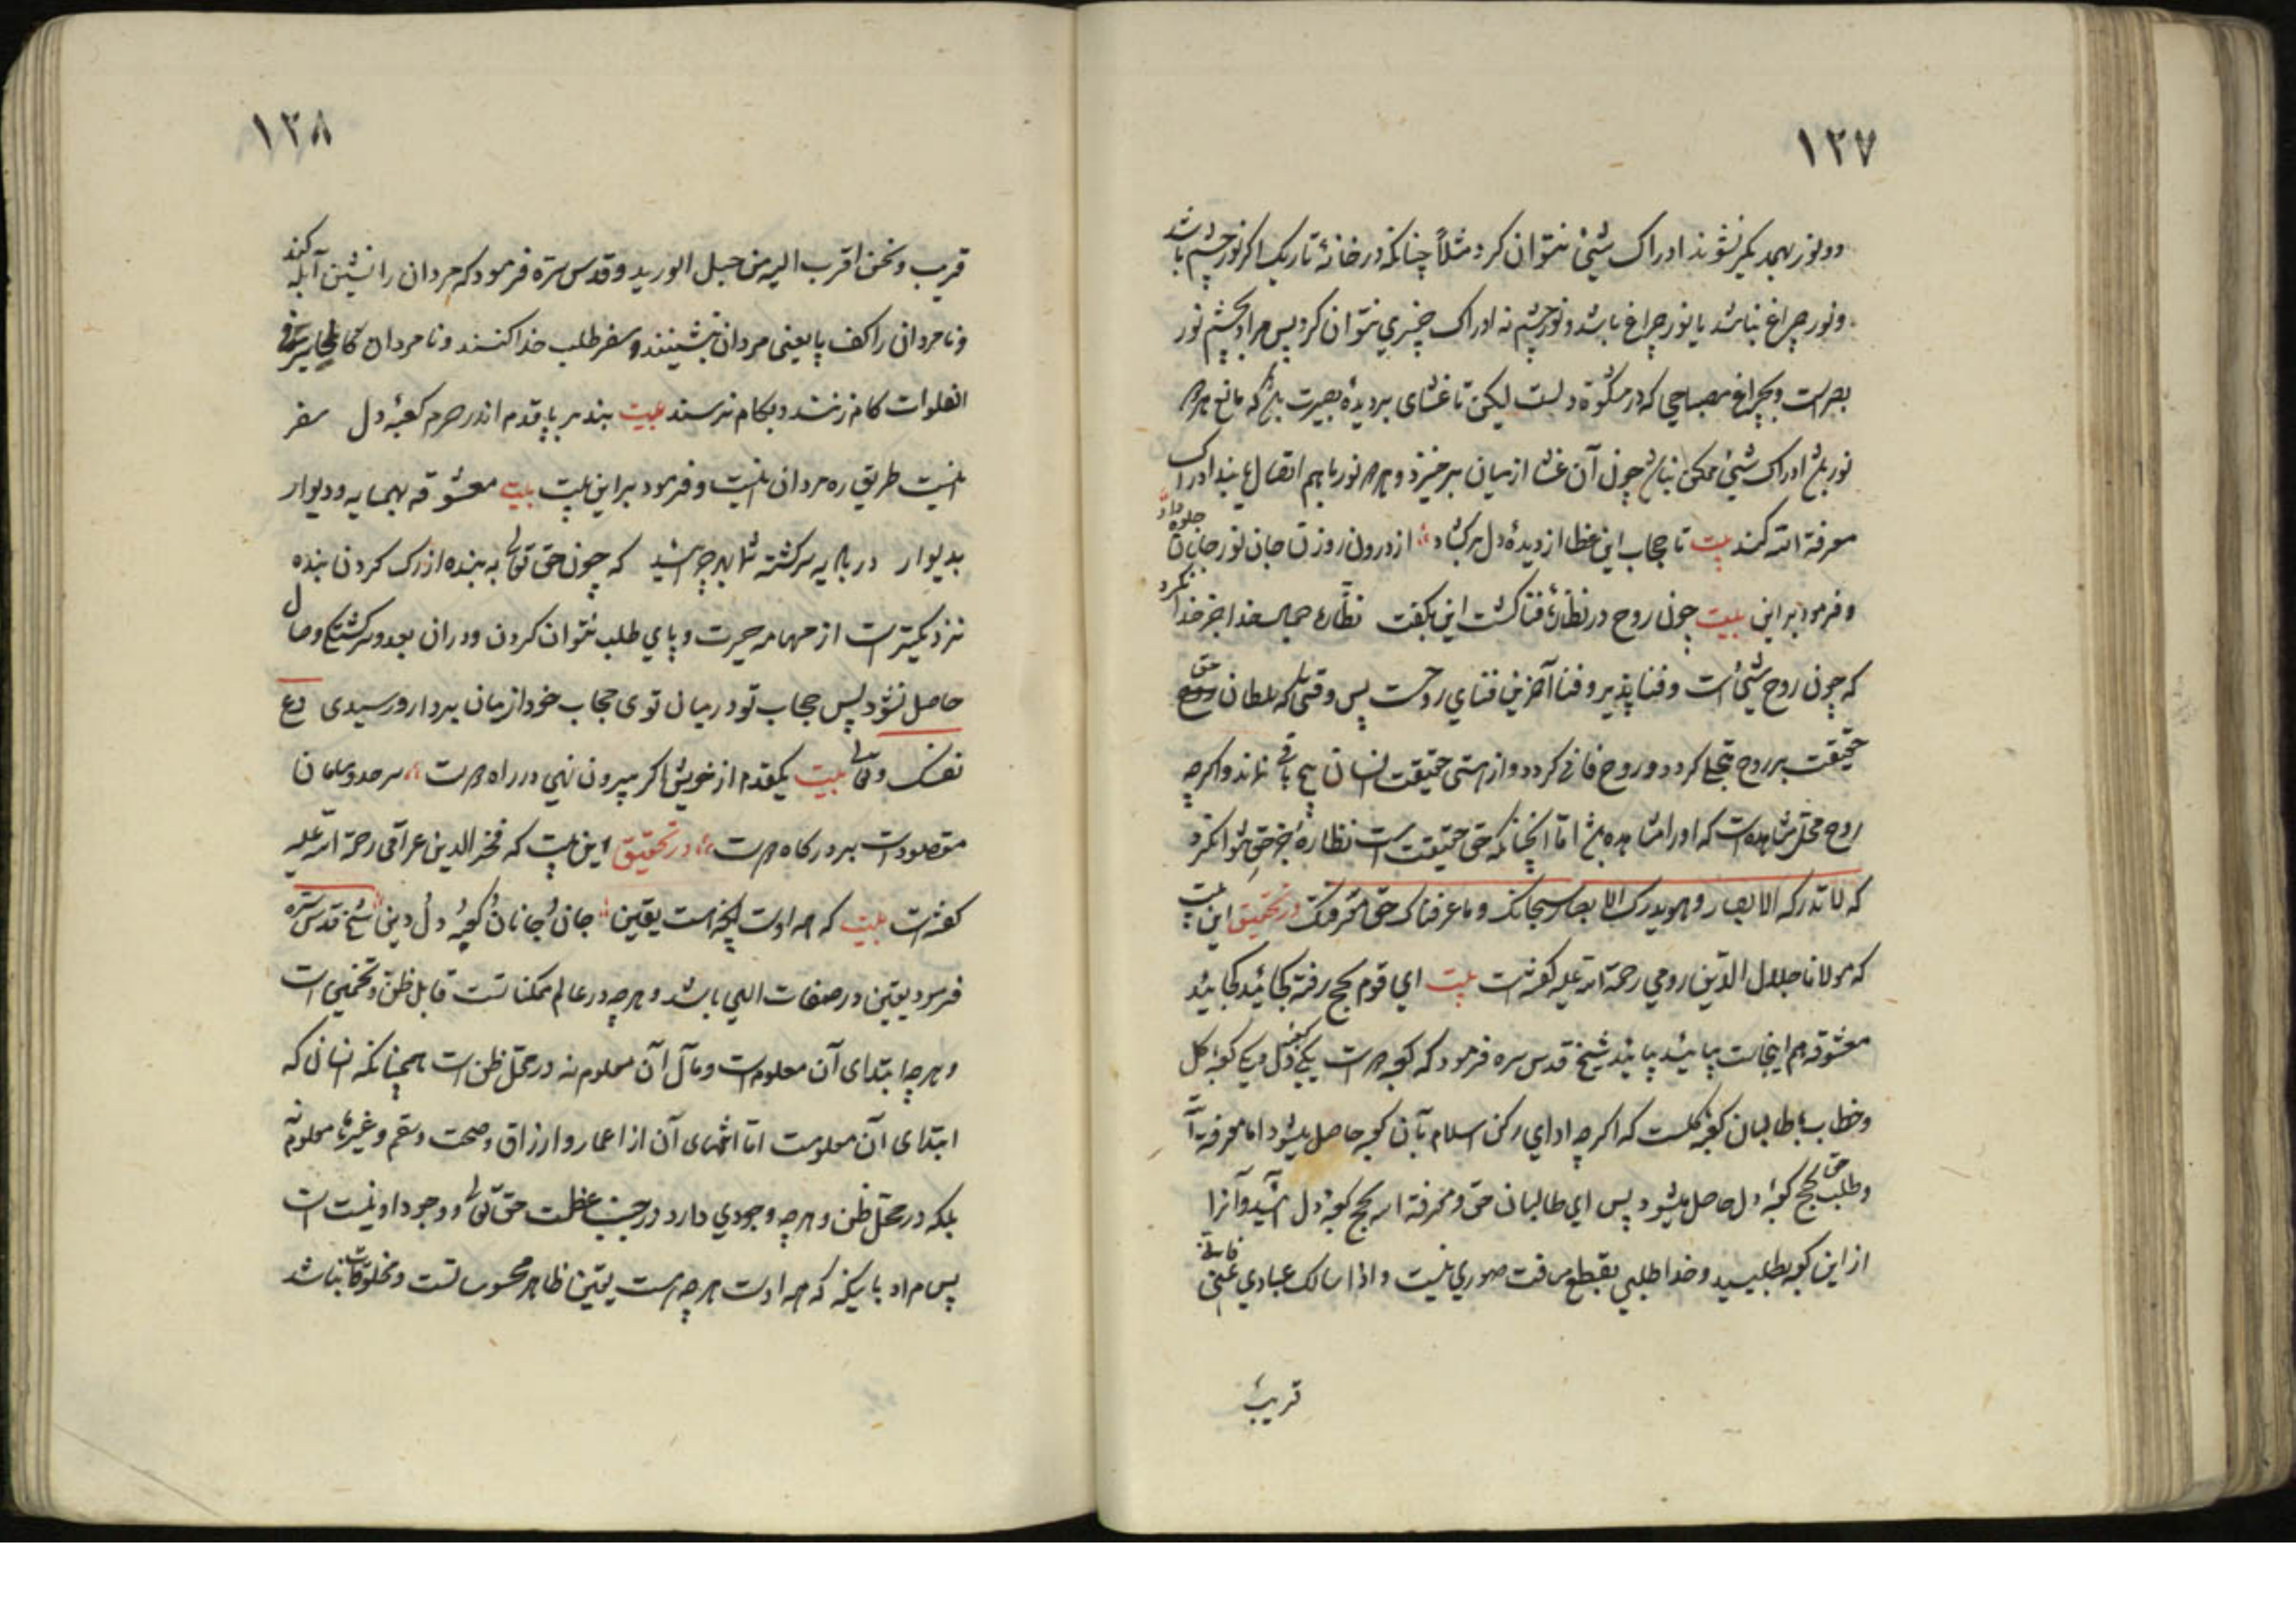 ۱۲۷
دو نور بهمدیگر نشوند ادراک شیئ نتوان کرد مثلاً چنانکه در خانهٔ تاریک اگر نور چشم باشد
و نور چراغ نباشد یا نور چراغ باشد و نور چشم نه ادراک چیزی نتوان کرد پس مراد بچشم نور
بصر است و بچراغ مصباحی که در مشکوة دلست لیکن تا غشای بر دیدهٔ بصیرت باشد که مانع هر دو
نور باشد ادراک شیئ ممکن نباشد چون آن غشا از میان برخیزد و هر دو نور با هم اتصال یابند ادراک
معرفة الله کنند بیت تا حجاب این غطا از دیدهٔ دل برگشاد از درون روزن جان نور جانان جلوه داد
و فرمود برین بیت چون روح در نظاره فنا گشت این بگفت نظارهٔ جمال خدا جز خدا نکرد
که چون روح شیئ است و فنا پذیر و فنا آخرین فنای روحست پس وقتی که سلطان حق
حقیقت بر روح تجلی کردد و روح فانی کردد و از هستی حقیقت انسان هیچ باقی نماند و اکرچه
روح محل مشاهده است که او را مشاهده باشد اما آنچنانکه حق حقیقت است نظارهٔ جز حق نتوان کرد
که لا تدرکه الابصار و هو یدرک الابصار سبحانک و ما عرفناک حق معرفتک در تحقیق این بیت
که مولانا جلال الدین رومی رحمة الله علیه گفته است بیت ای قوم بحج رفته کجائید کجائید
معشوقه هم اینجاست بیائید بیائید شیخ قدس سره فرمود که کعبه دو است یکی کعبهٔ دل و یکی کعبهٔ گل
و خطاب با طالبان کعبهٔ گلست که اگرچه ادای رکن اسلام بآن کعبه حاصل میشود اما معرفة الله
و طلب حق بحج کعبهٔ دل حاصل میشود پس ای طالبان حق و معرفة الله بحج کعبهٔ دل آئید و آنرا
از این کعبه بطلبید و خدا طلبی بقطع مسافت صوری نیست و اذا سالک عبادی عنی فانی
قریب
۱۲۸
قریب و نحن اقرب الیه من حبل الورید و قدس سره فرمود که مردان را نشین آبله کند
و نامردان را کف پا یعنی مردان بنشینند و سفر طلب خدا کنند و نامردان
الفلوات کام زنند و بکام نرسند بیت بنه سر بپا قدم اندر حرم کعبهٔ دل سفر
اینست طریق ره مردان اینست و فرمود برین بیت بیت معشوقه بهمسایه و دیوار
بدیوار در بادیه سرگشته شما بهر چه اشید که چون حق تعالی به بنده از رک گردن بنده
نزدیکتر است از مهامه حیرت و پای طلب نتوان کردن و در آن بعد و سرگشتگی وصال
حاصل نشود پس حجاب تو در میان توی حجاب خود از میان بردار و رسیدی دع
نفسک و تعال بیت یکقدم از خویش اگر بیرون نهی در راه دوست سرحد و سامان
مقصودت بر درگاه دوست در تحقیق این بیت که فخر الدین عراقی رحمة الله علیه
گفته است بیت که همه اوست آنچه هست یقین جان و جانان و کعبهٔ دل و دین شیخ قدس سره
فرمود یقین در صفات الهی باشد و هرچه در عالم ممکناتست قابل ظن و تخمین است
و هرچه ابتدای آن معلومست و مآل آن معلوم نه در محل ظن است همچنانکه انسان که
ابتدای آن معلومست اما انتهای آن از اعمار و ارزاق و صحت و سقم و غیرها معلوم نه
بلکه در محل ظن و هرچه وجودی دارد در جنب عظمت حق تعالی و وجود او نیست است
پس مراد بآنکه که همه اوست هرچه هست یقین ظاهر محسوساتست و مخلوقات نباشد